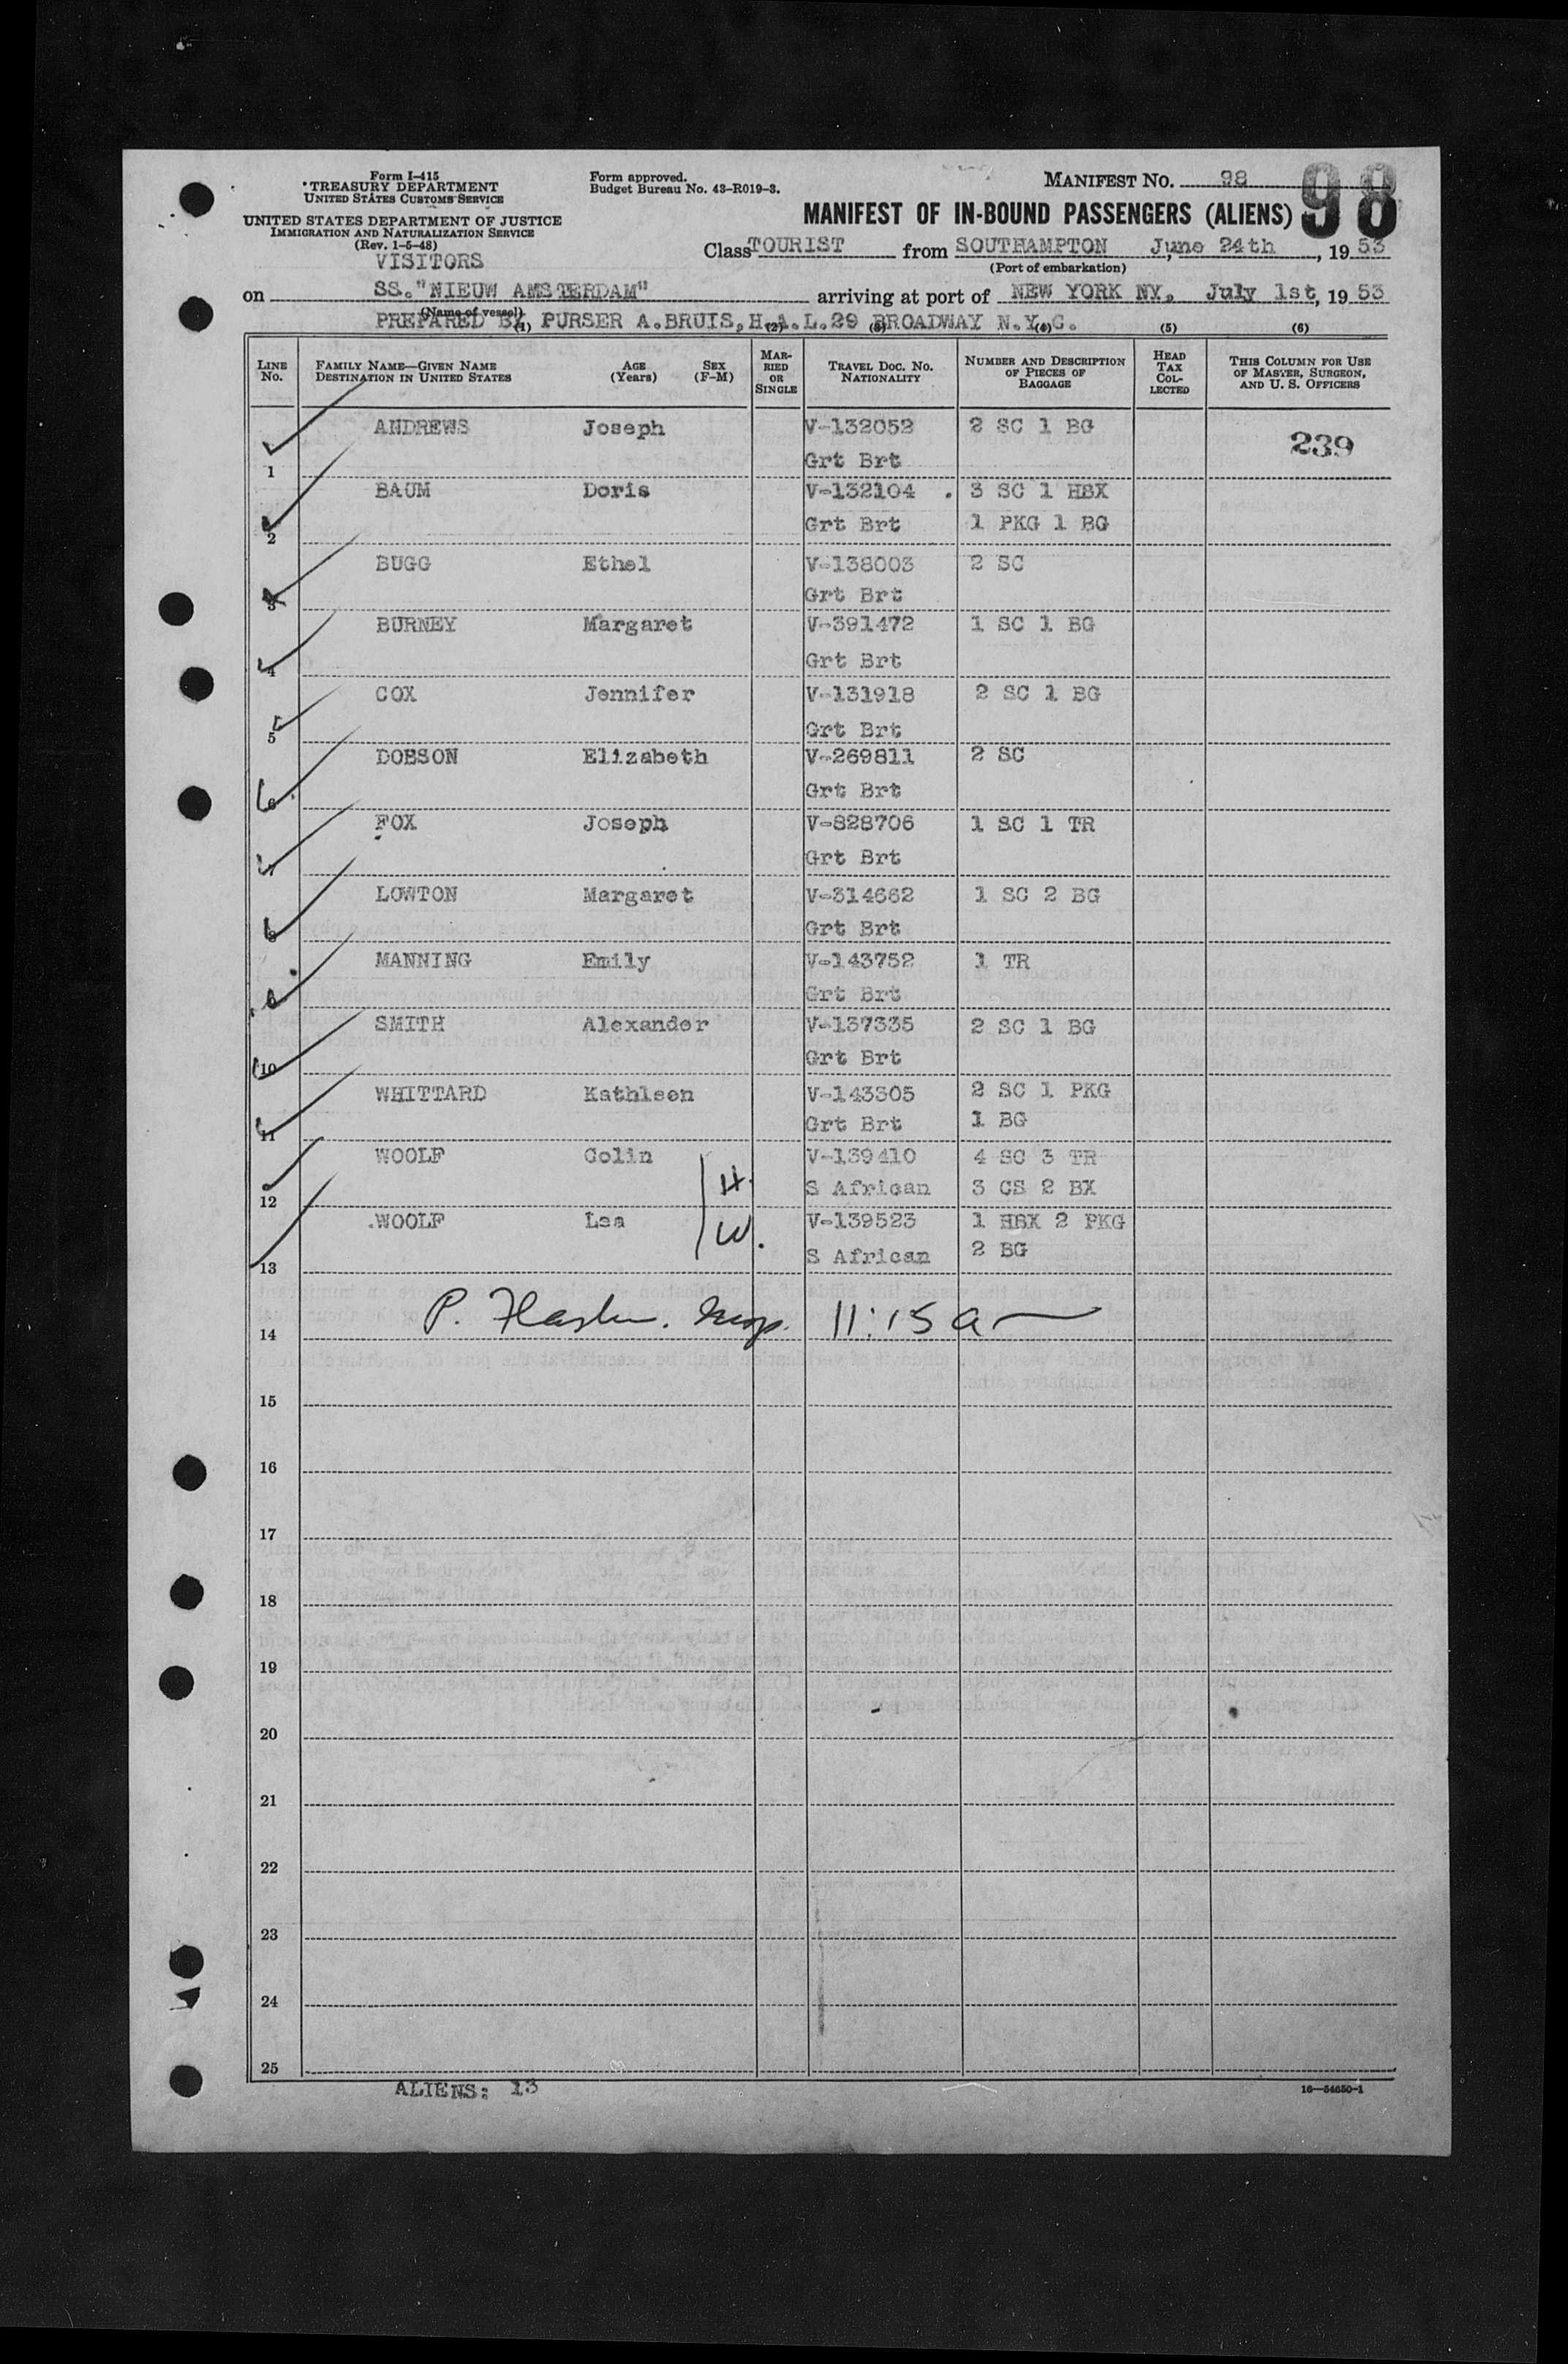 Form I-415
TREASURY DEPARTMENT
UNITED STATES CUSTOMS SERVICE
UNITED STATES DEPARTMENT OF JUSTICE
IMMIGRATION AND NATURALIZATION SERVICE
(Rev. 1-5-48)
VISITORS
Form approved.
Budget Bureau No. 43-R019-3.
MANIFEST NO. 98
98
MANIFEST OF IN-BOUND PASSENGERS (ALIENS)
Class TOURIST from SOUTHAMPTON June 24th, 1953
(Port of embarkation)
on SS. "NIEUW AMSTERDAM" arriving at port of NEW YORK NY. July 1st, 1953
(Name of vessel)
PREPARED BY PURSER A.BRUIS, H.A.L. 29 BROADWAY N.Y.C.
(1) (2) (3) (4) (5) (6)
LINE NO. FAMILY NAME—GIVEN NAME DESTINATION IN UNITED STATES AGE (Years) SEX (F-M) MARRIED OR SINGLE TRAVEL DOC. NO. NATIONALITY NUMBER AND DESCRIPTION OF PIECES OF BAGGAGE HEAD TAX COLLECTED THIS COLUMN FOR USE OF MASTER, SURGEON, AND U. S. OFFICERS
ANDREWS Joseph V-132052 2 SC 1 BG 239
1 Grt Brt
BAUM Doris V-132104 . 3 SC 1 HBX
2 Grt Brt 1 PKG 1 BG
BUGG Ethel V-138003 2 SC
3 Grt Brt
BURNEY Margaret V-391472 1 SC 1 BG
4 Grt Brt
COX Jennifer V-131918 2 SC 1 BG
5 Grt Brt
DOBSON Elizabeth V-269811 2 SC
6 Grt Brt
FOX Joseph V-828706 1 SC 1 TR
7 Grt Brt
LOWTON Margaret V-314662 1 SC 2 BG
8 Grt Brt
MANNING Emily V-143752 1 TR
9 Grt Brt
SMITH Alexander V-137335 2 SC 1 BG
10 Grt Brt
WHITTARD Kathleen V-143305 2 SC 1 PKG
11 Grt Brt 1 BG
WOOLF Colin H. V-139410 4 SC 3 TR
12 S African 3 CS 2 BX
WOOLF Lea W. V-139523 1 HBX 2 PKG
13 S African 2 BG
14 P. 11:15 a
15
16
17
18
19
20
21
22
23
24
25
ALIENS: 13
16—54650-1